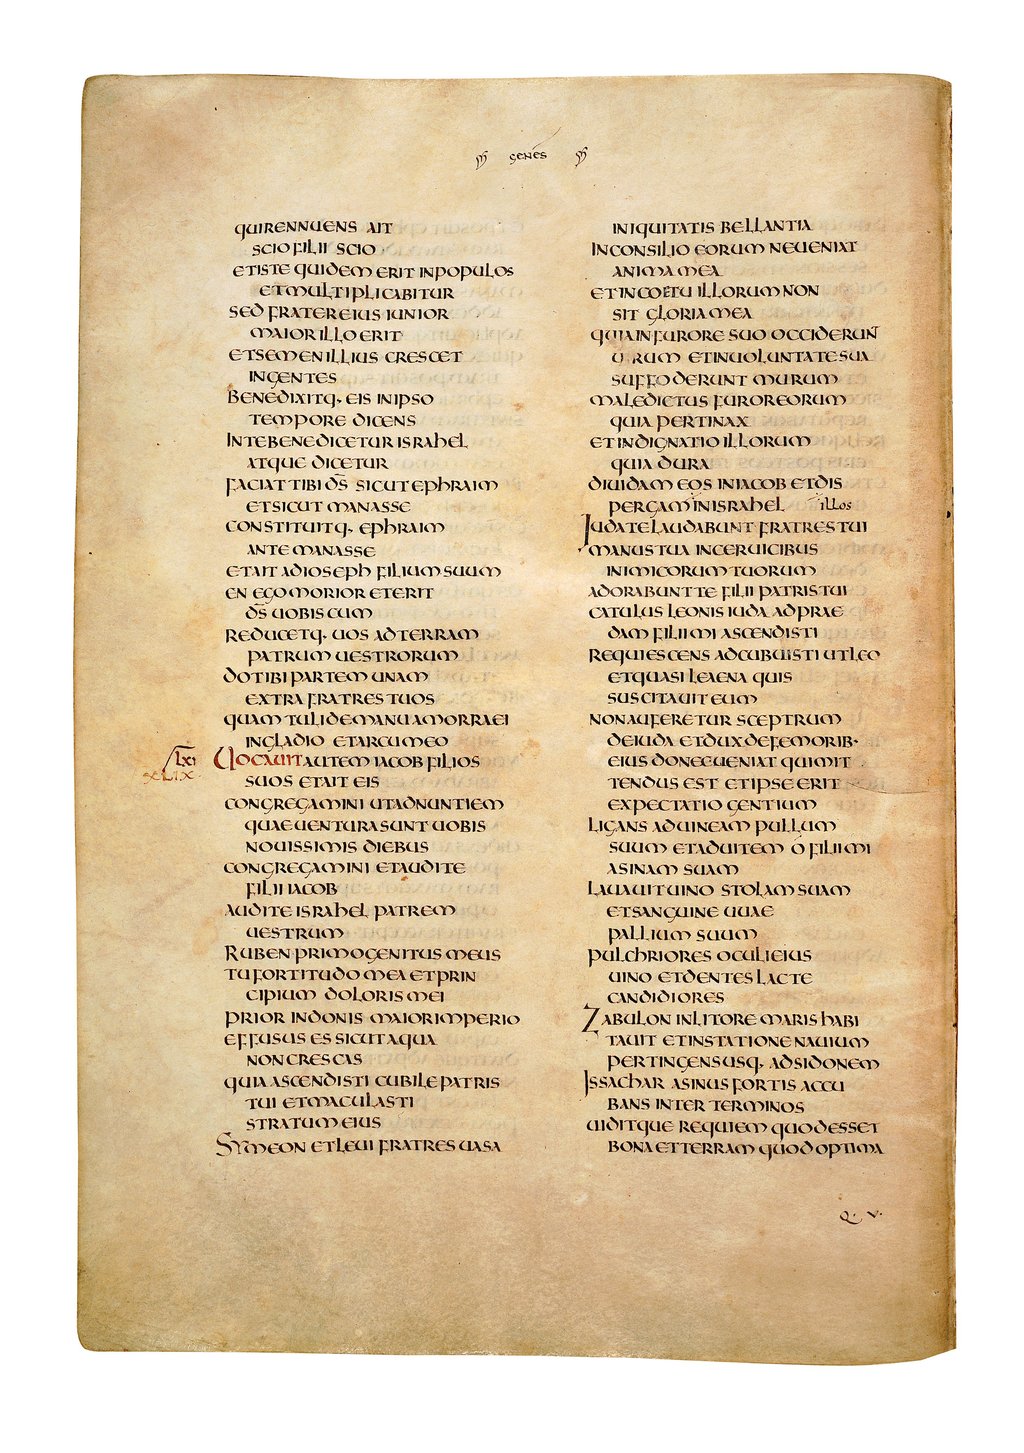 genes
QUIRENNUENS AIT
SCIO FILII SCIO
ETISTE QUIDEM ERIT INPOPULOS
ETMULTIPLICABITUR
SED FRATER EIUS IUNIOR
MAIOR ILLO ERIT
ETSEMEN ILLIUS CRESCET
INGENTES
BENEDIXITQ· EIS INIPSO
TEMPORE DICENS
INTE BENEDICETUR ISRAHEL
ATQUE DICETUR
FACIAT TIBI DS̄ SICUT EPHRAIM
ETSICUT MANASSE
CONSTITUITQ· EPHRAIM
ANTE MANASSE
ETAIT ADIOSEPH FILIUM SUUM
EN EGO MORIOR ETERIT
DS̄ UOBISCUM
REDUCETQ· UOS ADTERRAM
PATRUM UESTRORUM
DO TIBI PARTEM UNAM
EXTRA FRATRES TUOS
QUAM TULI DEMANU AMORRAEI
INGLADIO ETARCU MEO
LXI UOCAUIT AUTEM IACOB FILIOS
SUOS ETAIT EIS
CONGREGAMINI UTADNUNTIEM
QUAE UENTURA SUNT UOBIS
NOUISSIMIS DIEBUS
CONGREGAMINI ETAUDITE
FILII IACOB
AUDITE ISRAHEL PATREM
UESTRUM
RUBEN PRIMOGENITUS MEUS
TU FORTITUDO MEA ETPRIN
CIPIUM DOLORIS MEI
PRIOR INDONIS MAIOR IMPERIO
EFFUSUS ES SICUT AQUA
NON CRESCAS
QUIA ASCENDISTI CUBILE PATRIS
TUI ETMACULASTI
STRATUM EIUS
SYMEON ETLEUI FRATRES UASA
INIQUITATIS BELLANTIA
INCONSILIO EORUM NEUENIAT
ANIMA MEA
ETINCOETU ILLORUM NON
SIT GLORIA MEA
QUIA INFURORE SUO OCCIDERUN̄T
U RUM ETINUOLUNTATE SUA
SUFFODERUNT MURUM
MALEDICTUS FUROR EORUM
QUIA PERTINAX
ETINDIGNATIO ILLORUM
QUIA DURA
DIUIDAM EOS INIACOB ETDIS
PERGAM INISRAHEL illos
IUDA TE LAUDABUNT FRATRES TUI
MANUS TUA INCERUICIBUS
INIMICORUM TUORUM
ADORABUNT TE FILII PATRIS TUI
CATULUS LEONIS IUDA ADPRAE
DAM FILI MI ASCENDISTI
REQUIESCENS ADCUBUISTI UTLEO
ETQUASI LEAENA QUIS
SUSCITAUIT EUM
NON AUFERETUR SCEPTRUM
DEIUDA ETDUX DEFEMORIB·
EIUS DONEC UENIAT QUI MIT
TENDUS EST ETIPSE ERIT
EXPECTATIO GENTIUM
LIGANS ADUINEAM PULLUM
SUUM ETADUITEM O FILI MI
ASINAM SUAM
LAUAUIT UINO STOLAM SUAM
ETSANGUINE UUAE
PALLIUM SUUM
PULCHRIORES OCULI EIUS
UINO ETDENTES LACTE
CANDIDIORES
ZABULON INLITORE MARIS HABI
TAUIT ETINSTATIONE NAUIUM
PERTINGENS USQ· ADSIDONEM
ISSACHAR ASINUS FORTIS ACCU
BANS INTER TERMINOS
UIDITQUE REQUIEM QUOD ESSET
BONA ETTERRAM QUOD OPTIMA
Q· V·